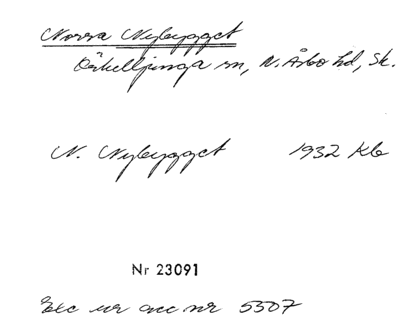 Norra Nybygget
Örkelljunga sn, N. Åsbo hd, Sk.
N. Nybygget 1932 Kb
Nr 23091
Exc ur acc nr 5507